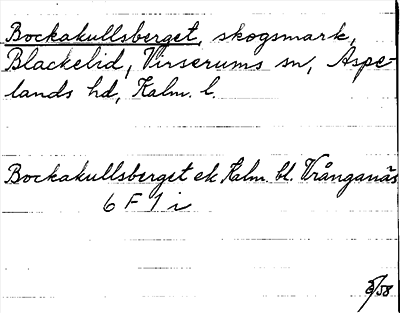 Bockakullsberget, skogsmark,
Blackelid, Virserums sn, Aspe-
lands hd, Kalm. l.
Bockakullsberget ek Kalm. bl. Vrånganäs
6 F 1 i
/58